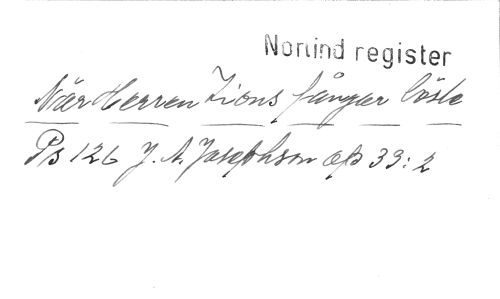 Norlind register
När Herren Zions fångar löste
Ps 126 J. A. Josephson op 39:2